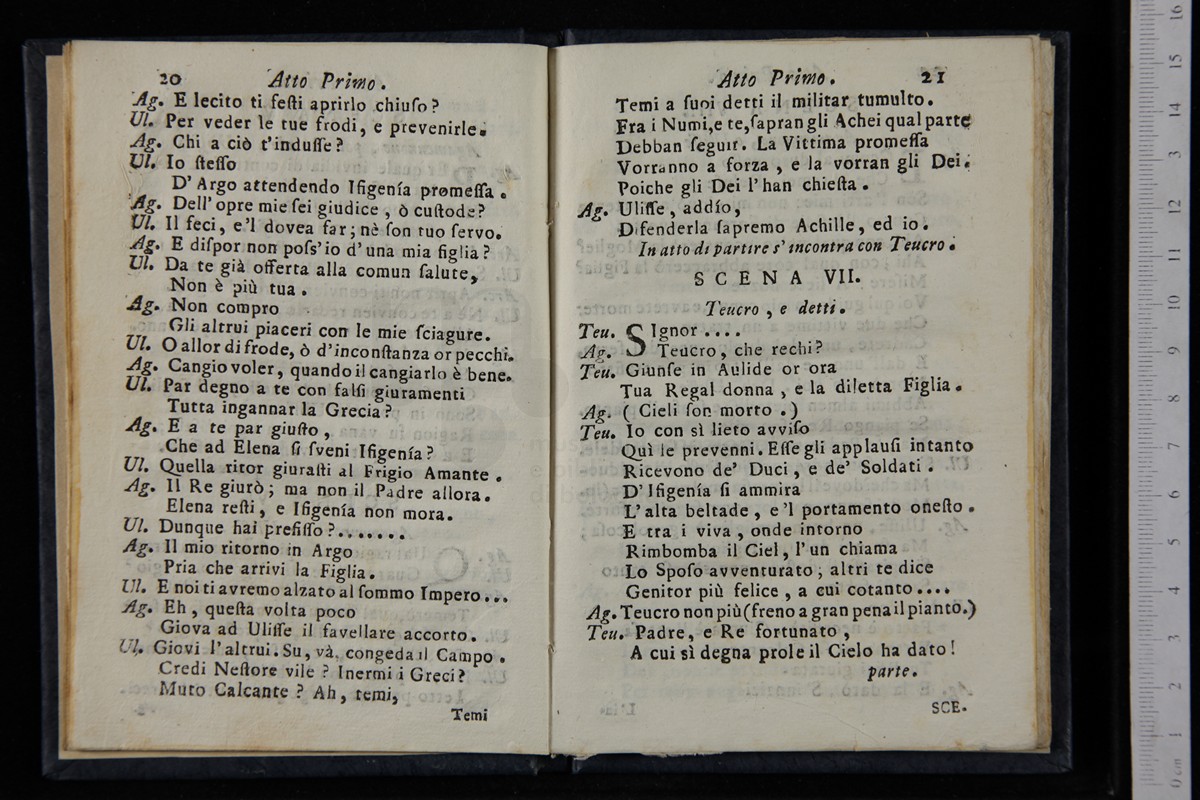 20 Atto Primo.
Ag. E lecito ti feſti aprirlo chiuſo?
Ul. Per veder le tue frodi, e prevenirle.
Ag. Chi a ciò t'induſſe?
Ul. Io ſteſſo
D'Argo attendendo Ifigenía promeſſa.
Ag. Dell'opre mie ſei giudice, ò cuſtode?
Ul. Il feci, e'l dovea far; nè ſon tuo ſervo.
Ag. E diſpor non poſs'io d'una mia figlia?
Ul. Da te già offerta alla comun ſalute,
Non è più tua.
Ag. Non compro
Gli altrui piaceri con le mie ſciagure.
Ul. O allor di frode, ò d'inconſtanza or pecchi.
Ag. Cangio voler, quando il cangiarlo è bene.
Ul. Par degno a te con falſi giuramenti
Tutta ingannar la Grecia?
Ag. E a te par giuſto,
Che ad Elena ſi ſveni Ifigenía?
Ul. Quella ritor giuraſti al Frigio Amante.
Ag. Il Re giurò; ma non il Padre allora.
Elena reſti, e Ifigenía non mora.
Ul. Dunque hai prefiſſo?.......
Ag. Il mio ritorno in Argo
Pria che arrivi la Figlia.
Ul. E noi ti avremo alzato al ſommo Impero...
Ag. Eh, queſta volta poco
Giova ad Uliſſe il favellare accorto.
Ul. Giovi l'altrui. Su, và, congeda il Campo.
Credi Neſtore vile? Inermi i Greci?
Muto Calcante? Ah, temi,
Temi
Atto Primo. 21
Temi a ſuoi detti il militar tumulto.
Fra i Numi, e te, ſapran gli Achei qual parte
Debban ſeguir. La Vittima promeſſa
Vorranno a forza, e la vorran gli Dei.
Poiche gli Dei l'han chieſta.
Ag. Uliſſe, addío,
Difenderla ſapremo Achille, ed io.
In atto di partire s'incontra con Teucro.
SCENA VII.
Teucro, e detti.
Teu. SIgnor....
Ag. Teucro, che rechi?
Teu. Giunſe in Aulide or ora
Tua Regal donna, e la diletta Figlia.
Ag. (Cieli ſon morto.)
Teu. Io con sì lieto avviſo
Quì le prevenni. Eſſe gli applauſi intanto
Ricevono de' Duci, e de' Soldati.
D'Ifigenía ſi ammira
L'alta beltade, e'l portamento oneſto.
E tra i viva, onde intorno
Rimbomba il Ciel, l'un chiama
Lo Spoſo avventurato; altri te dice
Genitor più felice, a cui cotanto....
Ag. Teucro non più (freno a gran pena il pianto.)
Teu. Padre, e Re fortunato,
A cui sì degna prole il Cielo ha dato!
parte.
SCE.